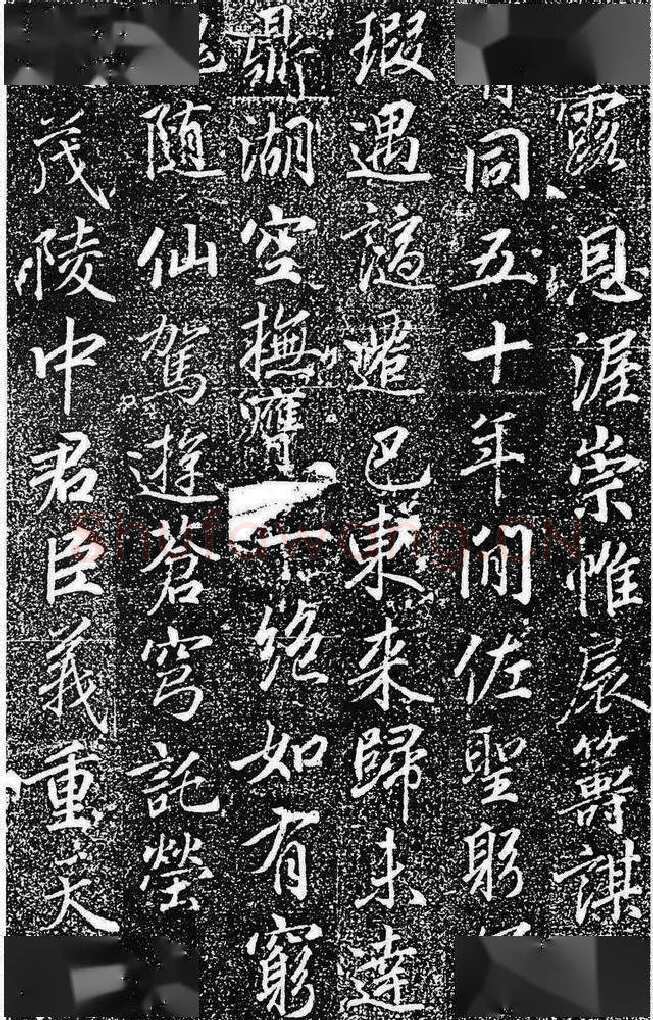 露恩渥崇帷扆籌謀
同五十年間佐聖躬
瑕遇謫遷巴東來歸未達
鼎湖空撫寶一絕如有窮
隨仙駕遊蒼穹託塋
茂陵中君臣義重天